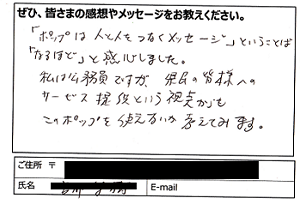 ぜひ、皆さまの感想やメッセージをお教えください。
「ポップは人と人をつなぐメッセージ」ということば
「なるほど」と感心しました。
私は公務員ですが、県民の皆様への
サービス提供という視点からも
このポップを使えないか考えてみます。
ご住所 〒
氏名
E-mail